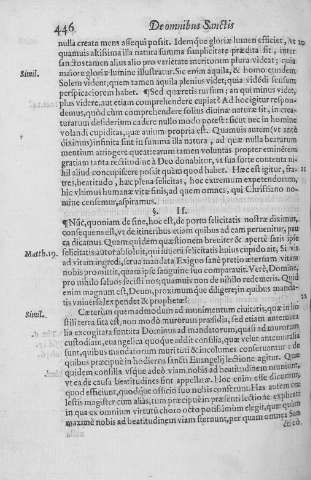 446 De omnibus Sanctis
nulla creata mens assequi possit. Idemque gloriæ lumen efficiet, vt 10
quamuis altissima illa natura summa simplicitate prædita sit, inter
sanctos tamen alius alio pro varietate meritorum plura videat; quia
Simil. maiore gloriæ lumine illustratur. Sic enim aquila, & homo eundem
Solem vident, quem tamen aquila plenius videt; quia videdi sensum
perspicaciorem habet. ¶ Sed quæretis rursum; an qui minus videt,
plus videre, aut etiam comprehendere cupiat? Ad hoc igitur respon-
demus, quòd cùm comprehendere solius diuinæ naturæ sit, in crea-
turarum desiderium cadere nullo modo potest: sicut nec in homine
volandi cupiditas, quæ auium propria est. Quamuis autem (vt antè
diximus) infinita sint in summa illa natura, ad quæ mens beatarum
mentium
gratiam tanta rectitudine à Deo donabitur, vt sua sorte contenta ni-
hil aliud concupiscere possit quàm quod habet. Hæc est igitur, fra- 11
tres, beatitudo, hæc plena felicitas, hoc extremum expetendorum,
hic vltimus humanæ vitæ finis, ad quem omnes, qui Christiano no-
mine censemur, aspiramus.
§. II.
¶ Nũc, quoniam de fine, hoc est, de porto felicitatis nostræ diximus,
consequens est, vt de itineribus etiam quibus ad eam peruenitur, pau-
ca dicamus. Quam quidem quæstionem breuiter & apertè satis ipse
Matth. 19. felicitatis autor absoluit, qui iuueni felicitatis huius cupido ait, Si vis
ad vitam ingredi, serua mandata. Exiguo sanè pretio æternam vitam
nobis promittit, quam ipse sanguine suo comparauit. Verè, Domine,
pro nihilo saluos facies nos, quamuis non de nihilo redemeris. Quid
enim magnum est, Deum, proximumque diligere, in quibus manda-
tis vniuersa lex pendet & prophetæ?
Simil. Cæterùm quemadmodum ad munimentum ciuitatis, quæ in ho-
stili terra sita est, non modò murorum præsidia, sed etiam anteriora
lia excogitata sunt: ita Dominus ad mandatorum, quasi ad murorum
custodiam, euangelica quoque addit consilia, quæ velut antemuralia
sunt, quibus mandatorum muri tuti & incolumes conseruantur: de
quibus præcipuè in hodierna sancti Euangelij lectione agitur. Quæ
quidem consilia vsque adeò viam nobis ad beatitudinem muniunt,
vt ea de causa beatitudines sint appellatæ. Hoc enim esse dicimus,
quod efficiunt, quodque officio suo nobis conferunt. Has autem cæ-
lestis magister cùm aliàs, tum præcipuè in præsenti lectione explicat:
in qua ex omnium virtutũ choro octo potissimùm elegit, quæ quàm
maximè nobis ad beatitudinem viam sternunt, per quam omnes San-
cti eò